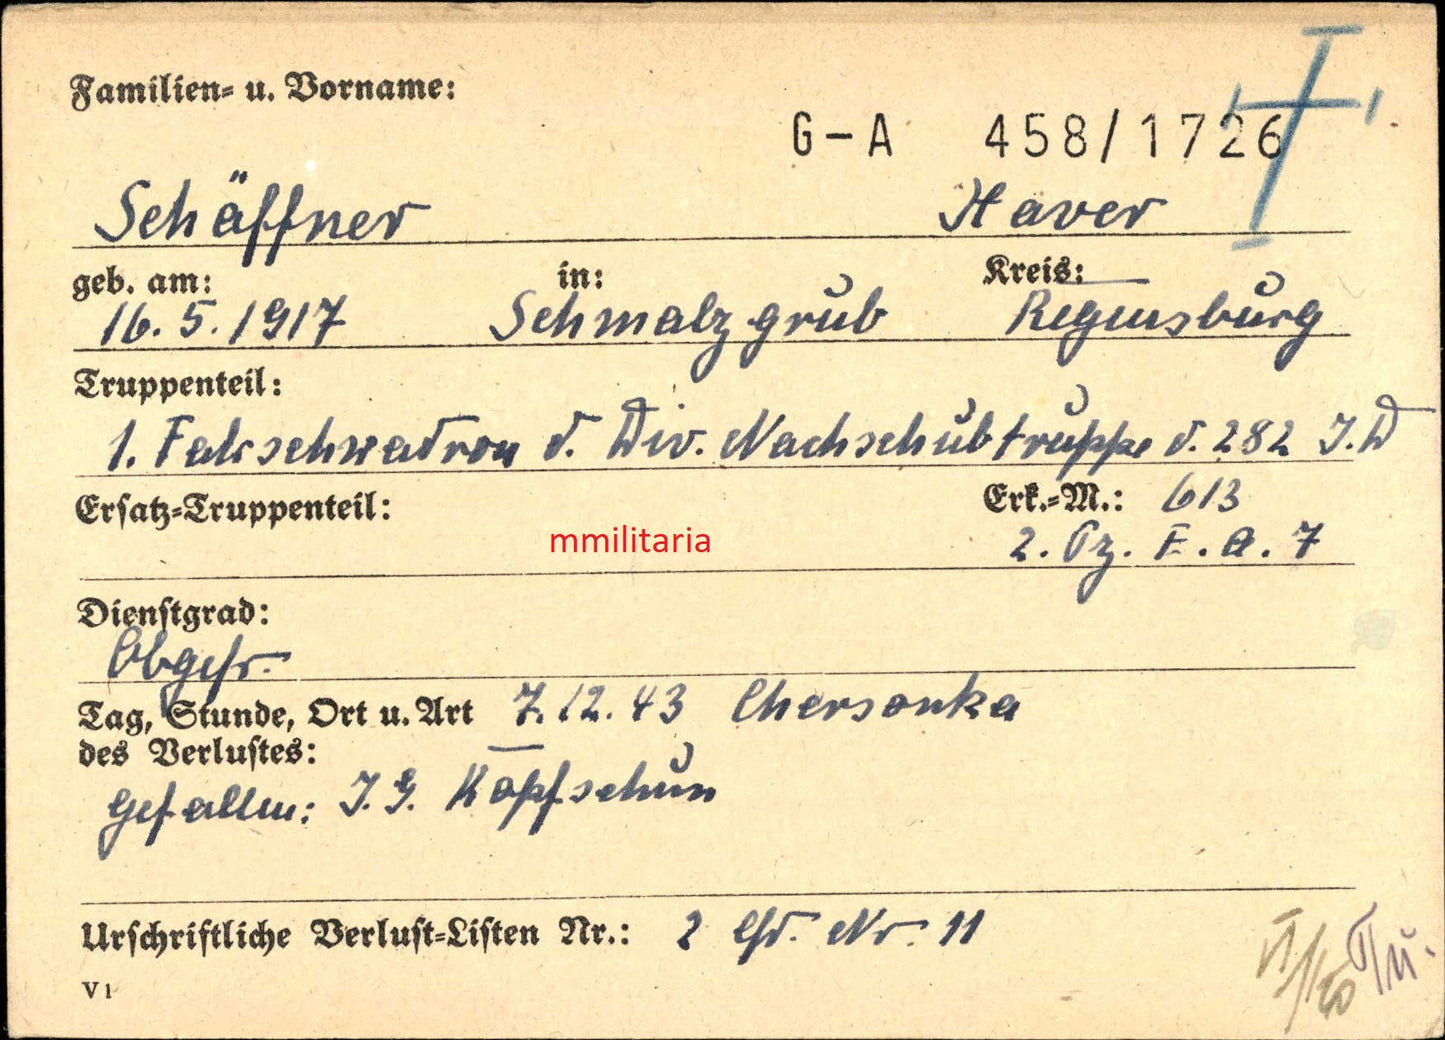 Familien- u. Vorname:
G-A 458/1726
Schäffner Xaver
geb. am: in: Kreis:
16.5.1917 Schmalzgrub Regensburg
Truppenteil:
1. Fahrschwadron d. Div. Nachschubtruppe d. 282 J.D
Ersatz-Truppenteil: Erk.-M.: 613
mmilitaria
2. Pz. E. A. 7
Dienstgrad:
Obgefr.
Tag, Stunde, Ort u. Art 7.12.43 Chersonka
des Verlustes:
Gefallen: J.G. Kopfschuss
Urschriftliche Verlust-Listen Nr.: 2 lfd. Nr. 11
V 1